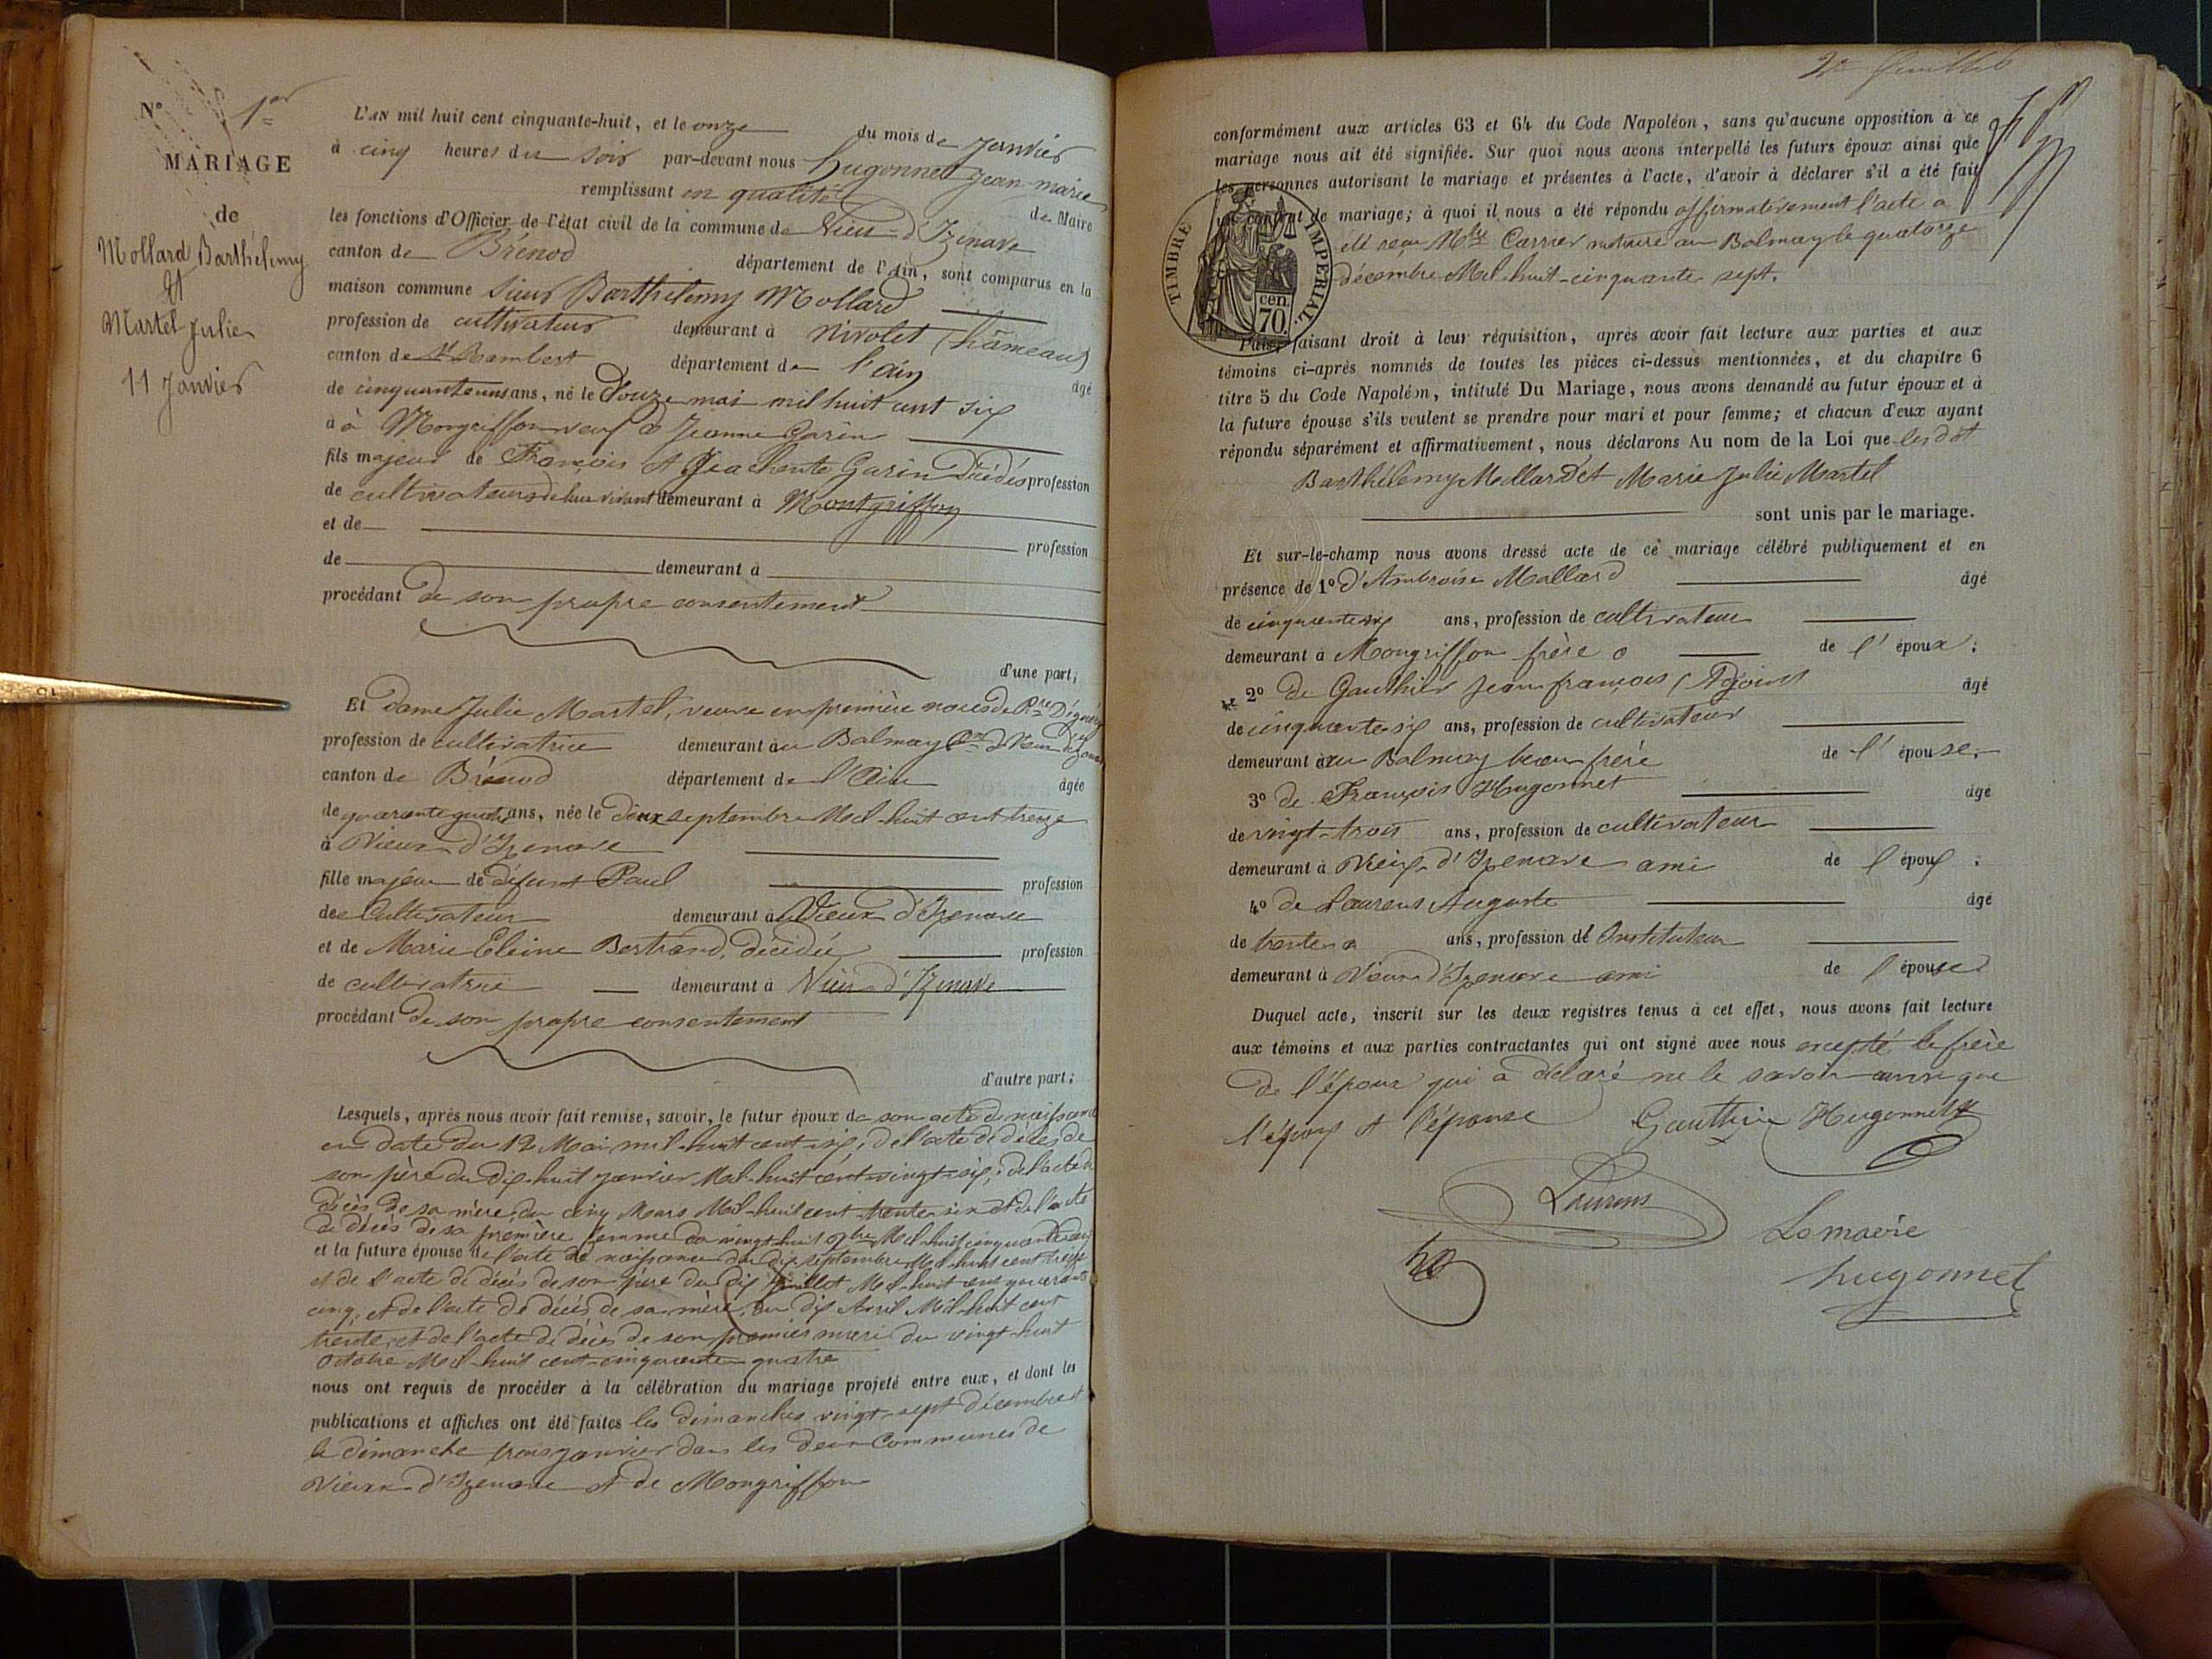 N° 1er
MARIAGE
de
Mollard Barthélemy
Et
Martel Julie
11 Janvier
L'AN mil huit cent cinquante-huit, et le onze du mois de Janvier
à cinq heures du soir par-devant nous hugonnet Jean-marie
remplissant en qualité de Maire
les fonctions d'Officier de l'état civil de la commune de Vieu-d'Izenave
canton de Brénod département de l'Ain, sont comparus en la
maison commune Sieur Barthélemy Mollard
profession de cultivateur demeurant à Nivolet (hâmeau)
canton de St Rambert département de l'ain âgé
de cinquante un ans, né le Douze mai mil huit cent six
à à Mongriffon veuf de Jeanne Garin
fils majeur de François et Garin Décédés profession
de cultivateurs de leur vivant demeurant à Montgriffon
et de profession
de demeurant à
procédant de son propre consentement
d'une part;
Et Dame Julie Martel, veuve en première noces de
profession de cultivatrice demeurant au Balmay
canton de Brénod département de l'Ain âgée
de quarante quatre ans, née le deux septembre Mil-huit cent treize
à Vieux-d'Izenave
fille majeure de défunt Paul profession
de Cultivateur demeurant à Vieux d'Izenave
et de Marie Eleine Bertrand, décidée profession
de cultivatrice demeurant à Vieu-d'Izenave
procédant de son propre consentement
d'autre part;
Lesquels, après nous avoir fait remise, savoir, le futur époux de son acte de naissance
en date du 12 Mai mil-huit cent-six; de l'acte de décès de
son père du dix-huit janvier Mil-huit cent-vingt-six; de l'acte de
décès de sa mère, du cinq Mars Mil-huit cent trente six et de l'acte
de décès de sa première femme du vingt-huit 9bre Mil-huit cinquante
et la future épouse de l'acte de naissance du septembre Mil-huit cent treize
et de l'acte de décès de son père du dix Juillet Mil-huit cent quarante
cinq; et de l'acte de décès de sa mère, du dix Avril Mil-huit cent
trente et de l'acte de décès de son premier mari du vingt-huit
Octobre Mil-huit cent-cinquante-quatre
nous ont requis de procéder à la célébration du mariage projeté entre eux, et dont les
publications et affiches ont été faites les dimanches vingt-sept décembre et
le dimanche trois janvier dans les deux Communes de
Vieux-d'Izenave et de Mongriffon
2e feuillet
conformément aux articles 63 et 64 du Code Napoléon, sans qu'aucune opposition à ce
mariage nous ait été signifiée. Sur quoi nous avons interpellé les futurs époux ainsi que
les personnes autorisant le mariage et présentes à l'acte, d'avoir à déclarer s'il a été fait
un contrat de mariage; à quoi il nous a été répondu affirmativement l'acte a
été reçu Carrier notaire au Balmay le quatorze
décembre Mil-huit-cinquante-sept.
TIMBRE IMPERIAL.
70 cen.
Puis, faisant droit à leur réquisition, après avoir fait lecture aux parties et aux
témoins ci-après nommés de toutes les pièces ci-dessus mentionnées, et du chapitre 6
titre 5 du Code Napoléon, intitulé Du Mariage, nous avons demandé au futur époux et à
la future épouse s'ils veulent se prendre pour mari et pour femme; et chacun d'eux ayant
répondu séparément et affirmativement, nous déclarons Au nom de la Loi que les dit
Barthélemy Mollard et Marie Julie Martel
sont unis par le mariage.
Et sur-le-champ nous avons dressé acte de ce mariage célébré publiquement et en
présence de 1° d'Ambroise Mollard âgé
de cinquante six ans, profession de cultivateur
demeurant à Mongriffon frère de l'époux;
2° de Gauthier Jean françois (Adjoint âgé
de cinquante-six ans, profession de cultivateur
demeurant au Balmay beau frère de l'épouse.
3° de François Hugonnet âgé
de vingt-trois ans, profession de cultivateur
demeurant à Vieux-d'Izenave ami de l'époux;
4° de Laurens Auguste âgé
de trente ans, profession d'Instituteur
demeurant à Vieux d'Izenave ami de l'épouse
Duquel acte, inscrit sur les deux registres tenus à cet effet, nous avons fait lecture
aux témoins et aux parties contractantes qui ont signé avec nous excepté le frère
de l'époux qui a déclaré ne le savoir que
l'époux et l'épouse Gauthier Hugonnet
Laurens
Le maire
hugonnet